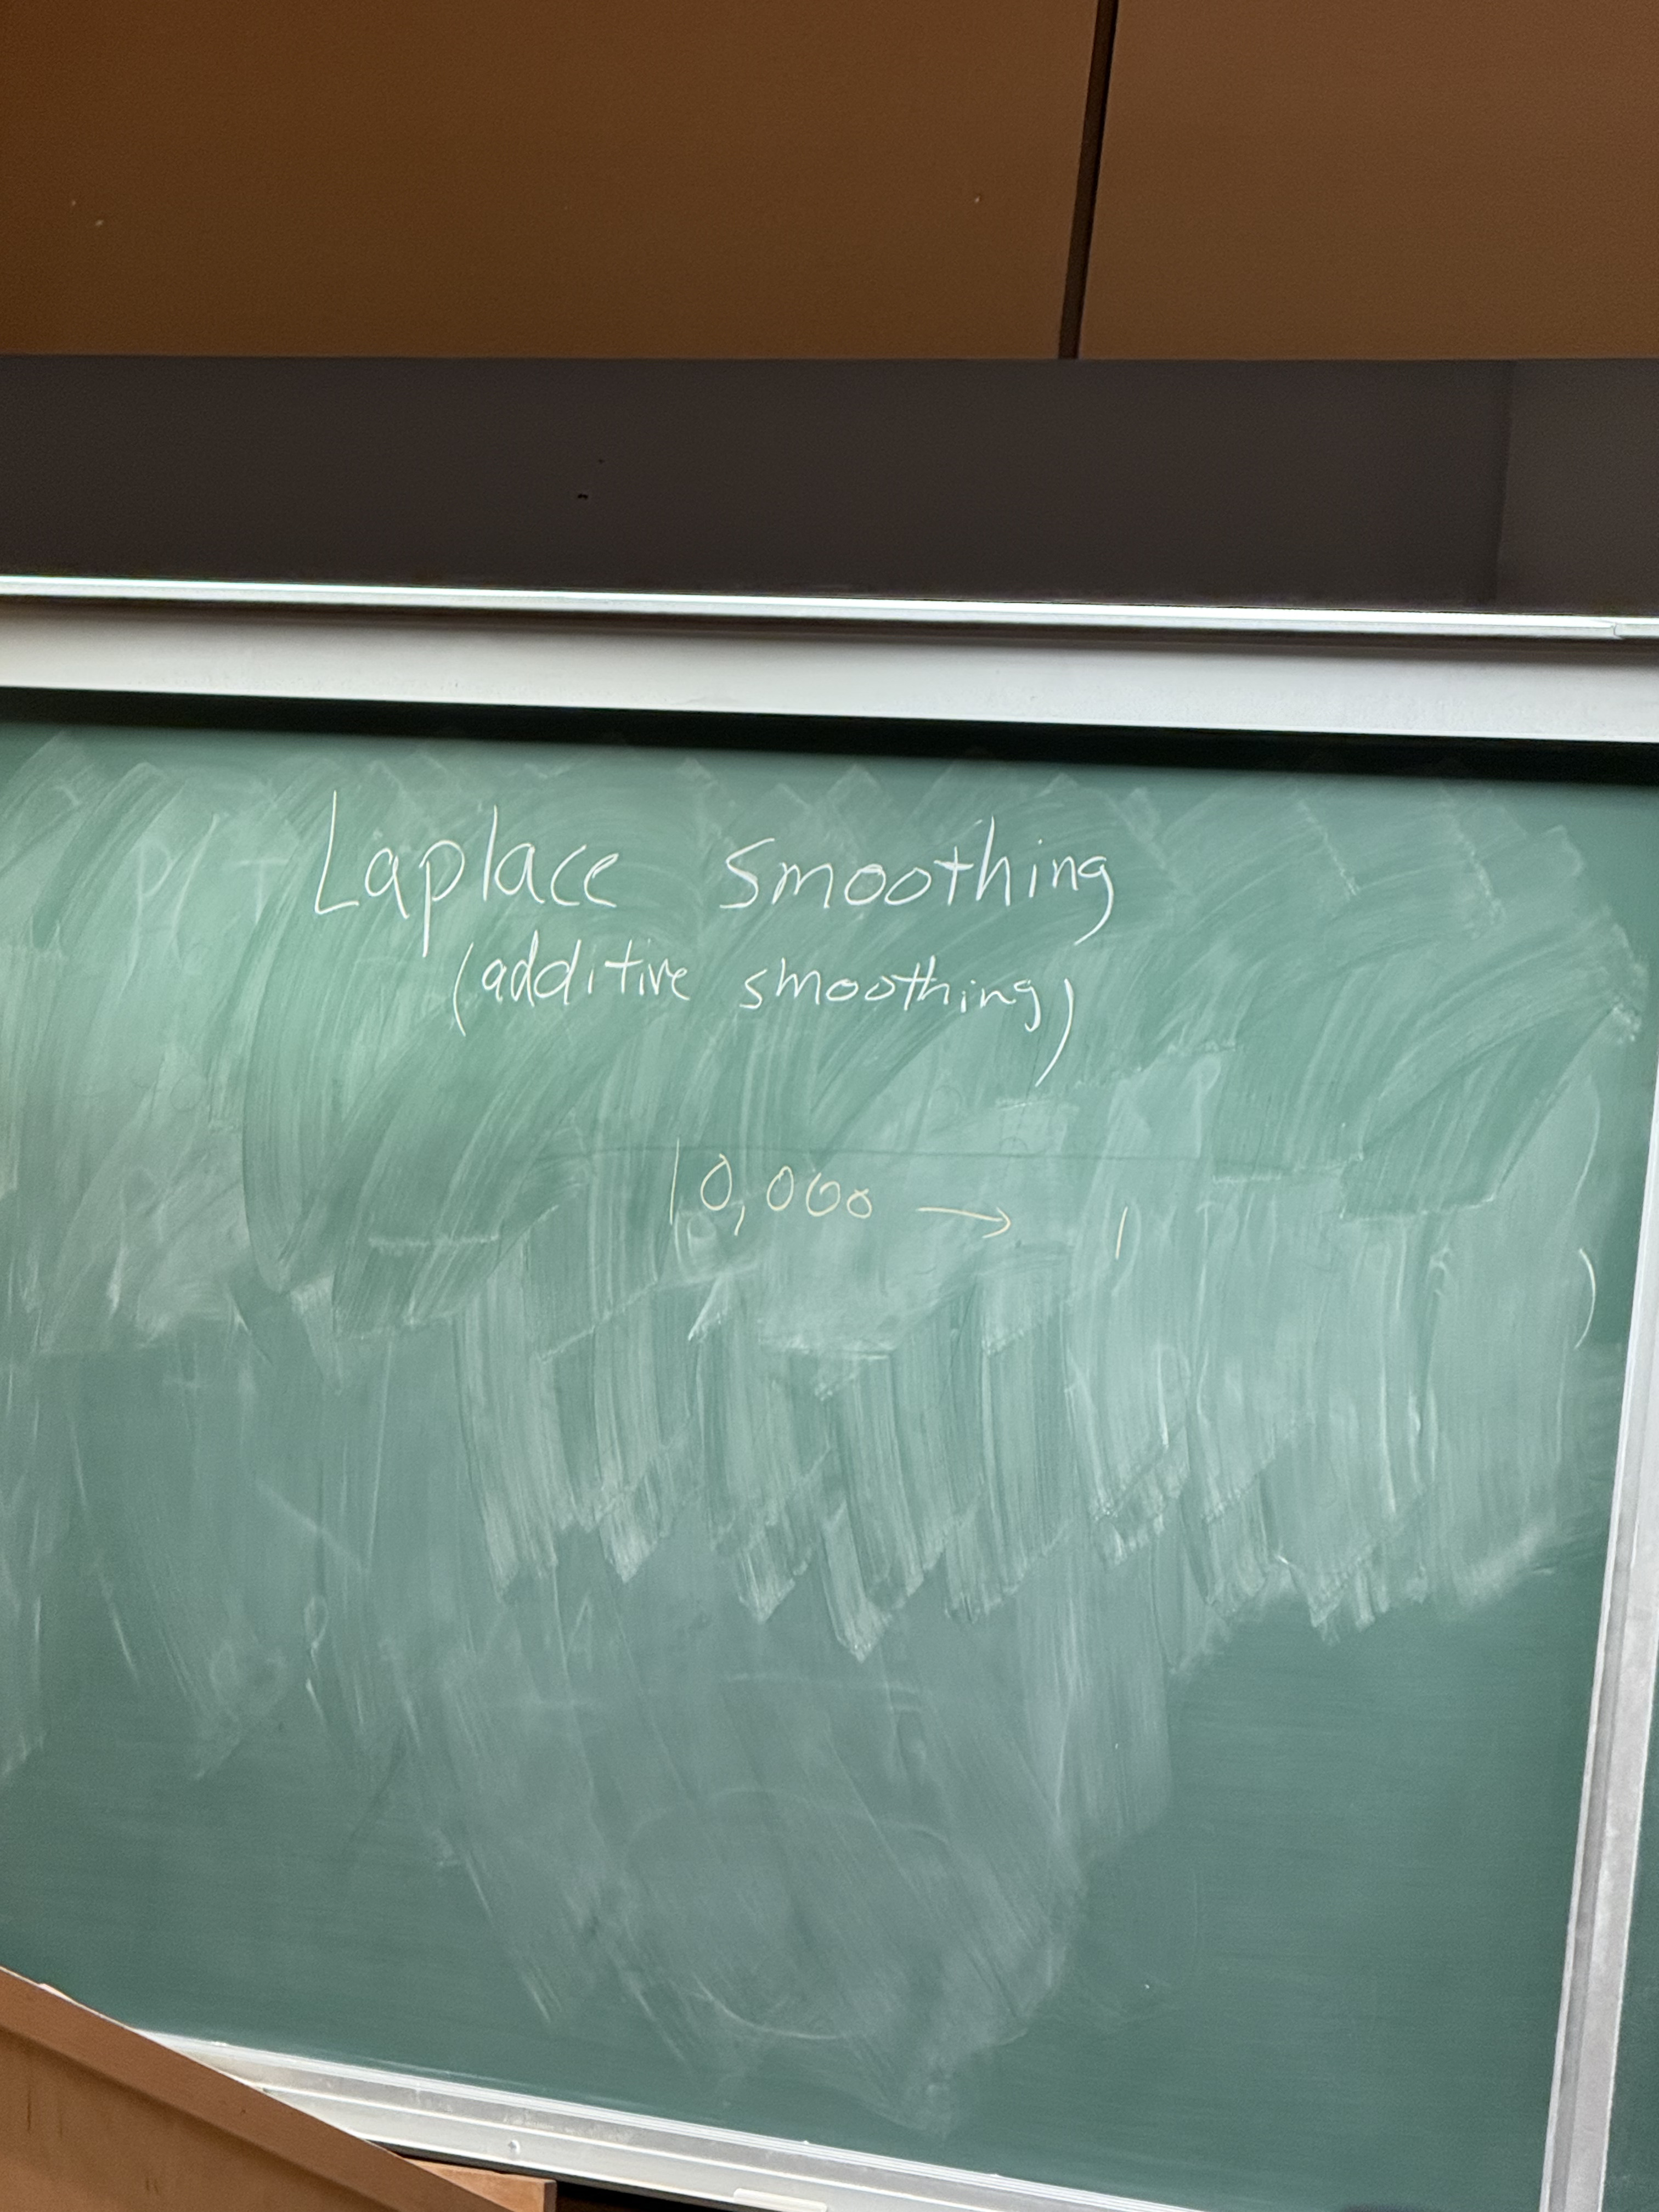 Laplace smoothing
(additive smoothing)
10,000 → 1